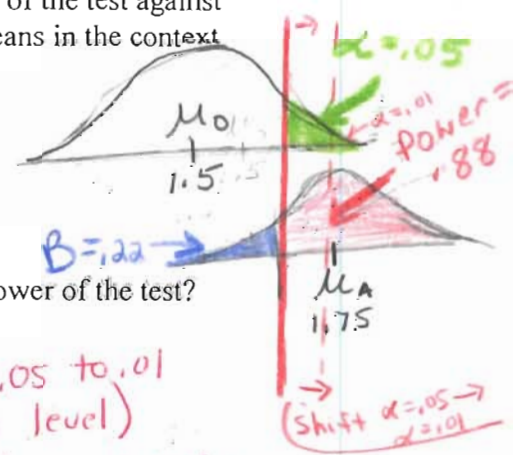 of the test against
eans in the context
α=.05
α=.01
μ0
1.5
power=
.88
B=.22
μA
1.75
ower of the test?
.05 to .01
level)
(shift α=.05→
α=.01